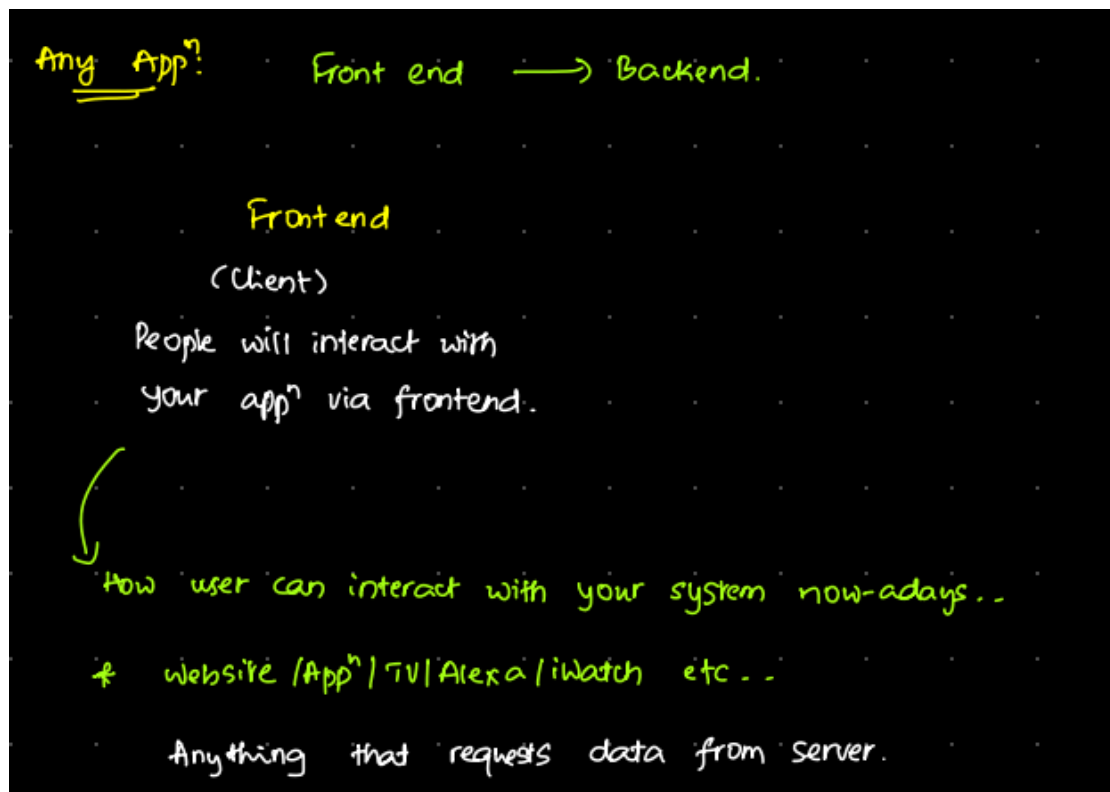 Any Appⁿ: Front end → Backend.
Frontend
(Client)
People will interact with
your appⁿ via frontend.
How user can interact with your system now-adays..
* website /Appⁿ/TV/Alexa/iWatch etc...
Anything that requests data from server.